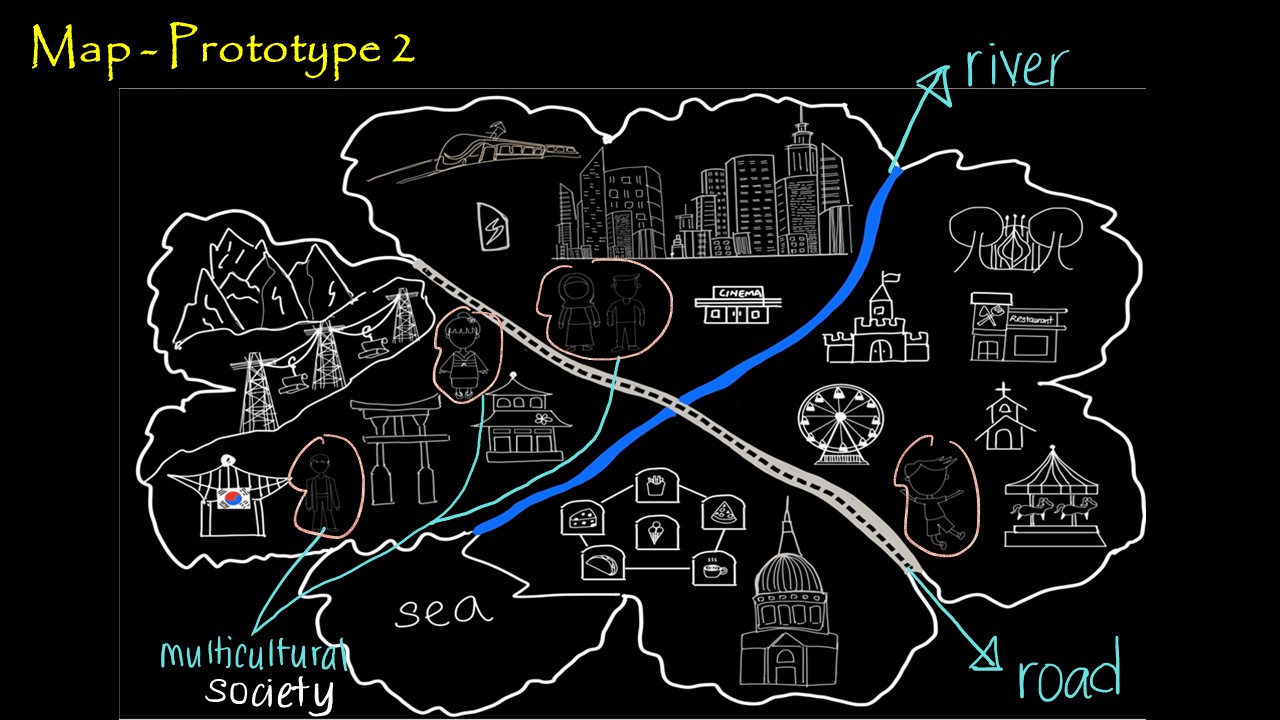 Map - Prototype 2
river
CINEMA
Restaurant
sea
multicultural
society
road